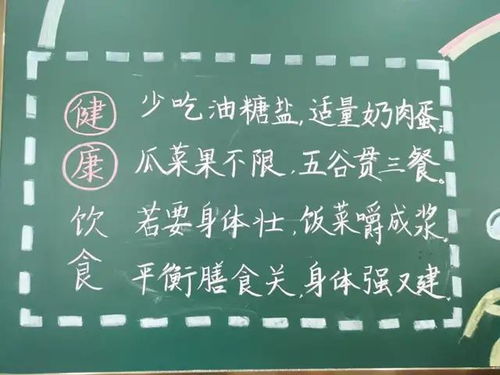 健康饮食
少吃油糖盐,适量奶肉蛋;
瓜菜果不限,五谷贯三餐。
若要身体壮,饭菜嚼成浆.
平衡膳食关,身体强又建.